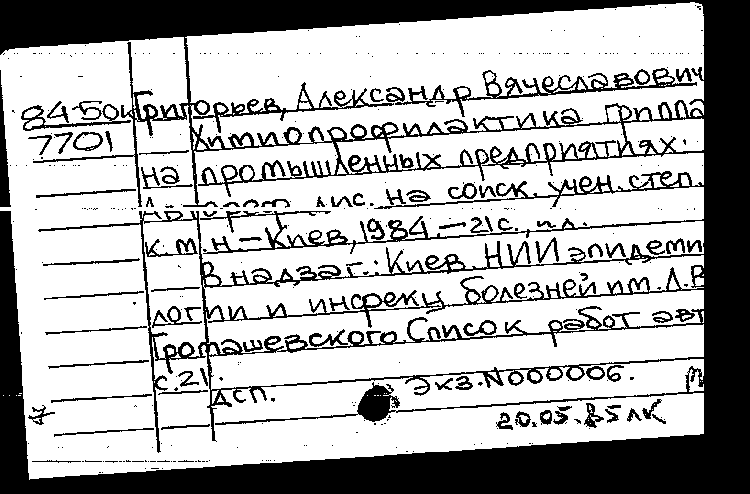 84-50к Григорьев, Александр Вячеславович
7701 Химиопрофилактика гриппа
на промышленных предприятиях.
Автореф. дис. на соиск. учен. степ.
к.м.н. – Киев, 1984. – 21с., ил.
В надзаг.: Киев. НИИ эпидеми
логии и инфекц болезней им. Л.В
Громашевского. Список работ авт
с.21.
дсп. Экз. N000006.
20.05.85 лк